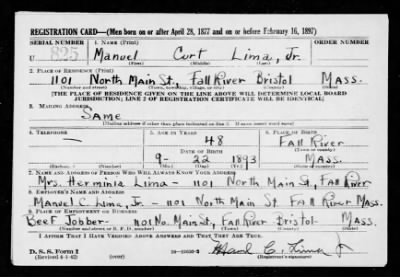 REGISTRATION CARD—(Men born on or after April 28, 1877 and on or before February 16, 1897)
SERIAL NUMBER 1. NAME (Print) ORDER NUMBER
U 825 Manuel Curt Lima, Jr.
(First) (Middle) (Last)
2. PLACE OF RESIDENCE (Print)
1101 North Main St., Fall River Bristol Mass.
(Number and street) (Town, township, village, or city) (County) (State)
[THE PLACE OF RESIDENCE GIVEN ON THE LINE ABOVE WILL DETERMINE LOCAL BOARD
JURISDICTION; LINE 2 OF REGISTRATION CERTIFICATE WILL BE IDENTICAL]
3. MAILING ADDRESS
Same
[Mailing address if other than place indicated on line 2. If same insert word same]
4. TELEPHONE 5. AGE IN YEARS 6. PLACE OF BIRTH
— 48 Fall River
DATE OF BIRTH (Town or county)
9- 22 1893 Mass.
(Mo.) (Day) (Yr.) (State or country)
7. NAME AND ADDRESS OF PERSON WHO WILL ALWAYS KNOW YOUR ADDRESS
Mrs. Herminia Lima - 1101 North Main St., Fall River
8. EMPLOYER'S NAME AND ADDRESS
Manuel C. Lima, Jr. - 1101 North Main St. Fall River Mass.
9. PLACE OF EMPLOYMENT OR BUSINESS
Beef Jobber - 1101 No. Main St., Fall River Bristol Mass.
(Number and street or R. F. D. number) (Town) (County) (State)
I AFFIRM THAT I HAVE VERIFIED ABOVE ANSWERS AND THAT THEY ARE TRUE.
D. S. S. Form 1
(Revised 4-1-42)